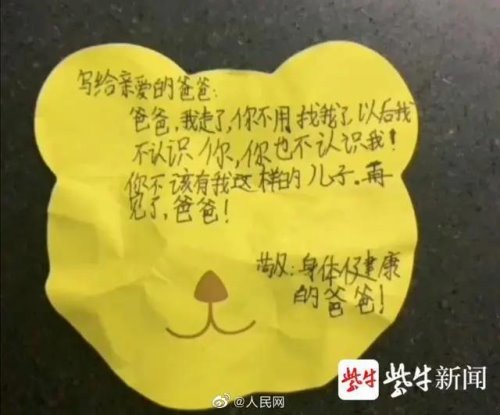 写给亲爱的爸爸:
爸爸,我走了,你不用找我了,以后我
不认识你,你也不认识我!
你不该有我这样的儿子。再
见了,爸爸!
身体健康
的爸爸!
@人民网
紫牛 紫牛新闻